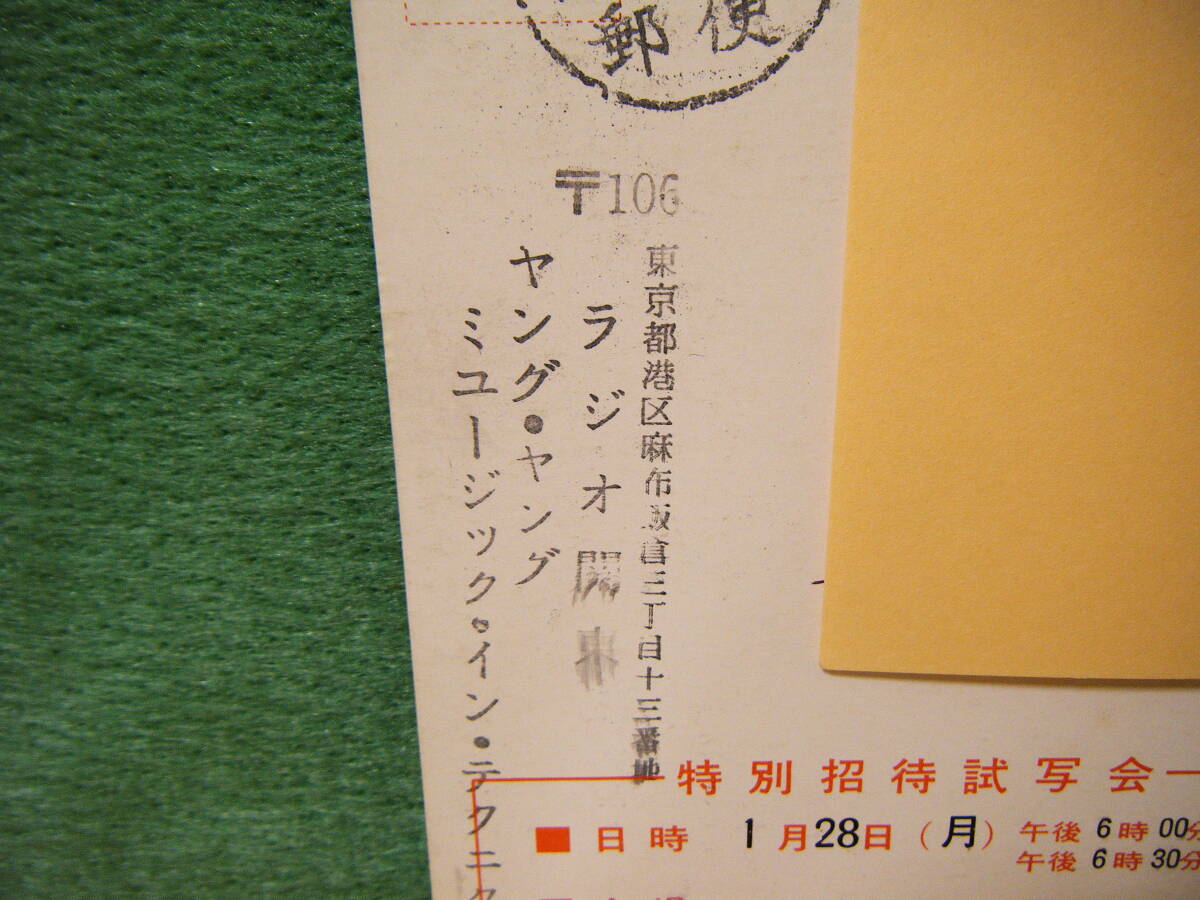 郵便
〒106
東京都港区麻布飯倉三丁目十三番地
ラジオ関東
ヤング・ヤング
ミユージック・イン・テクニク
特別招待試写会
■日時 1月28日(月) 午後6時00分
午後6時30分